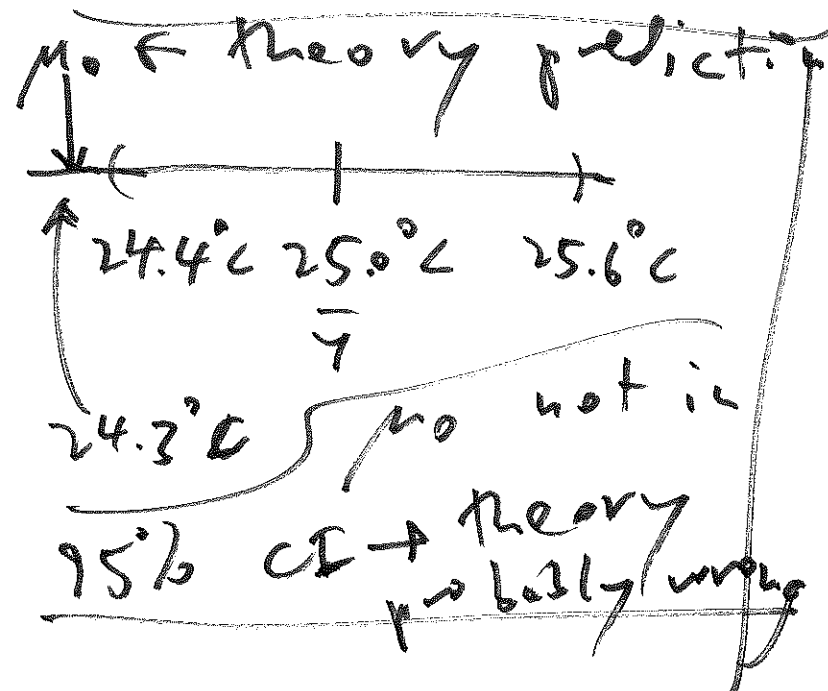 μ₀ ← theory prediction
24.4°C 25.0°C 25.6°C
ȳ
24.3°C μ₀ not in
95% CI → theory
probably wrong